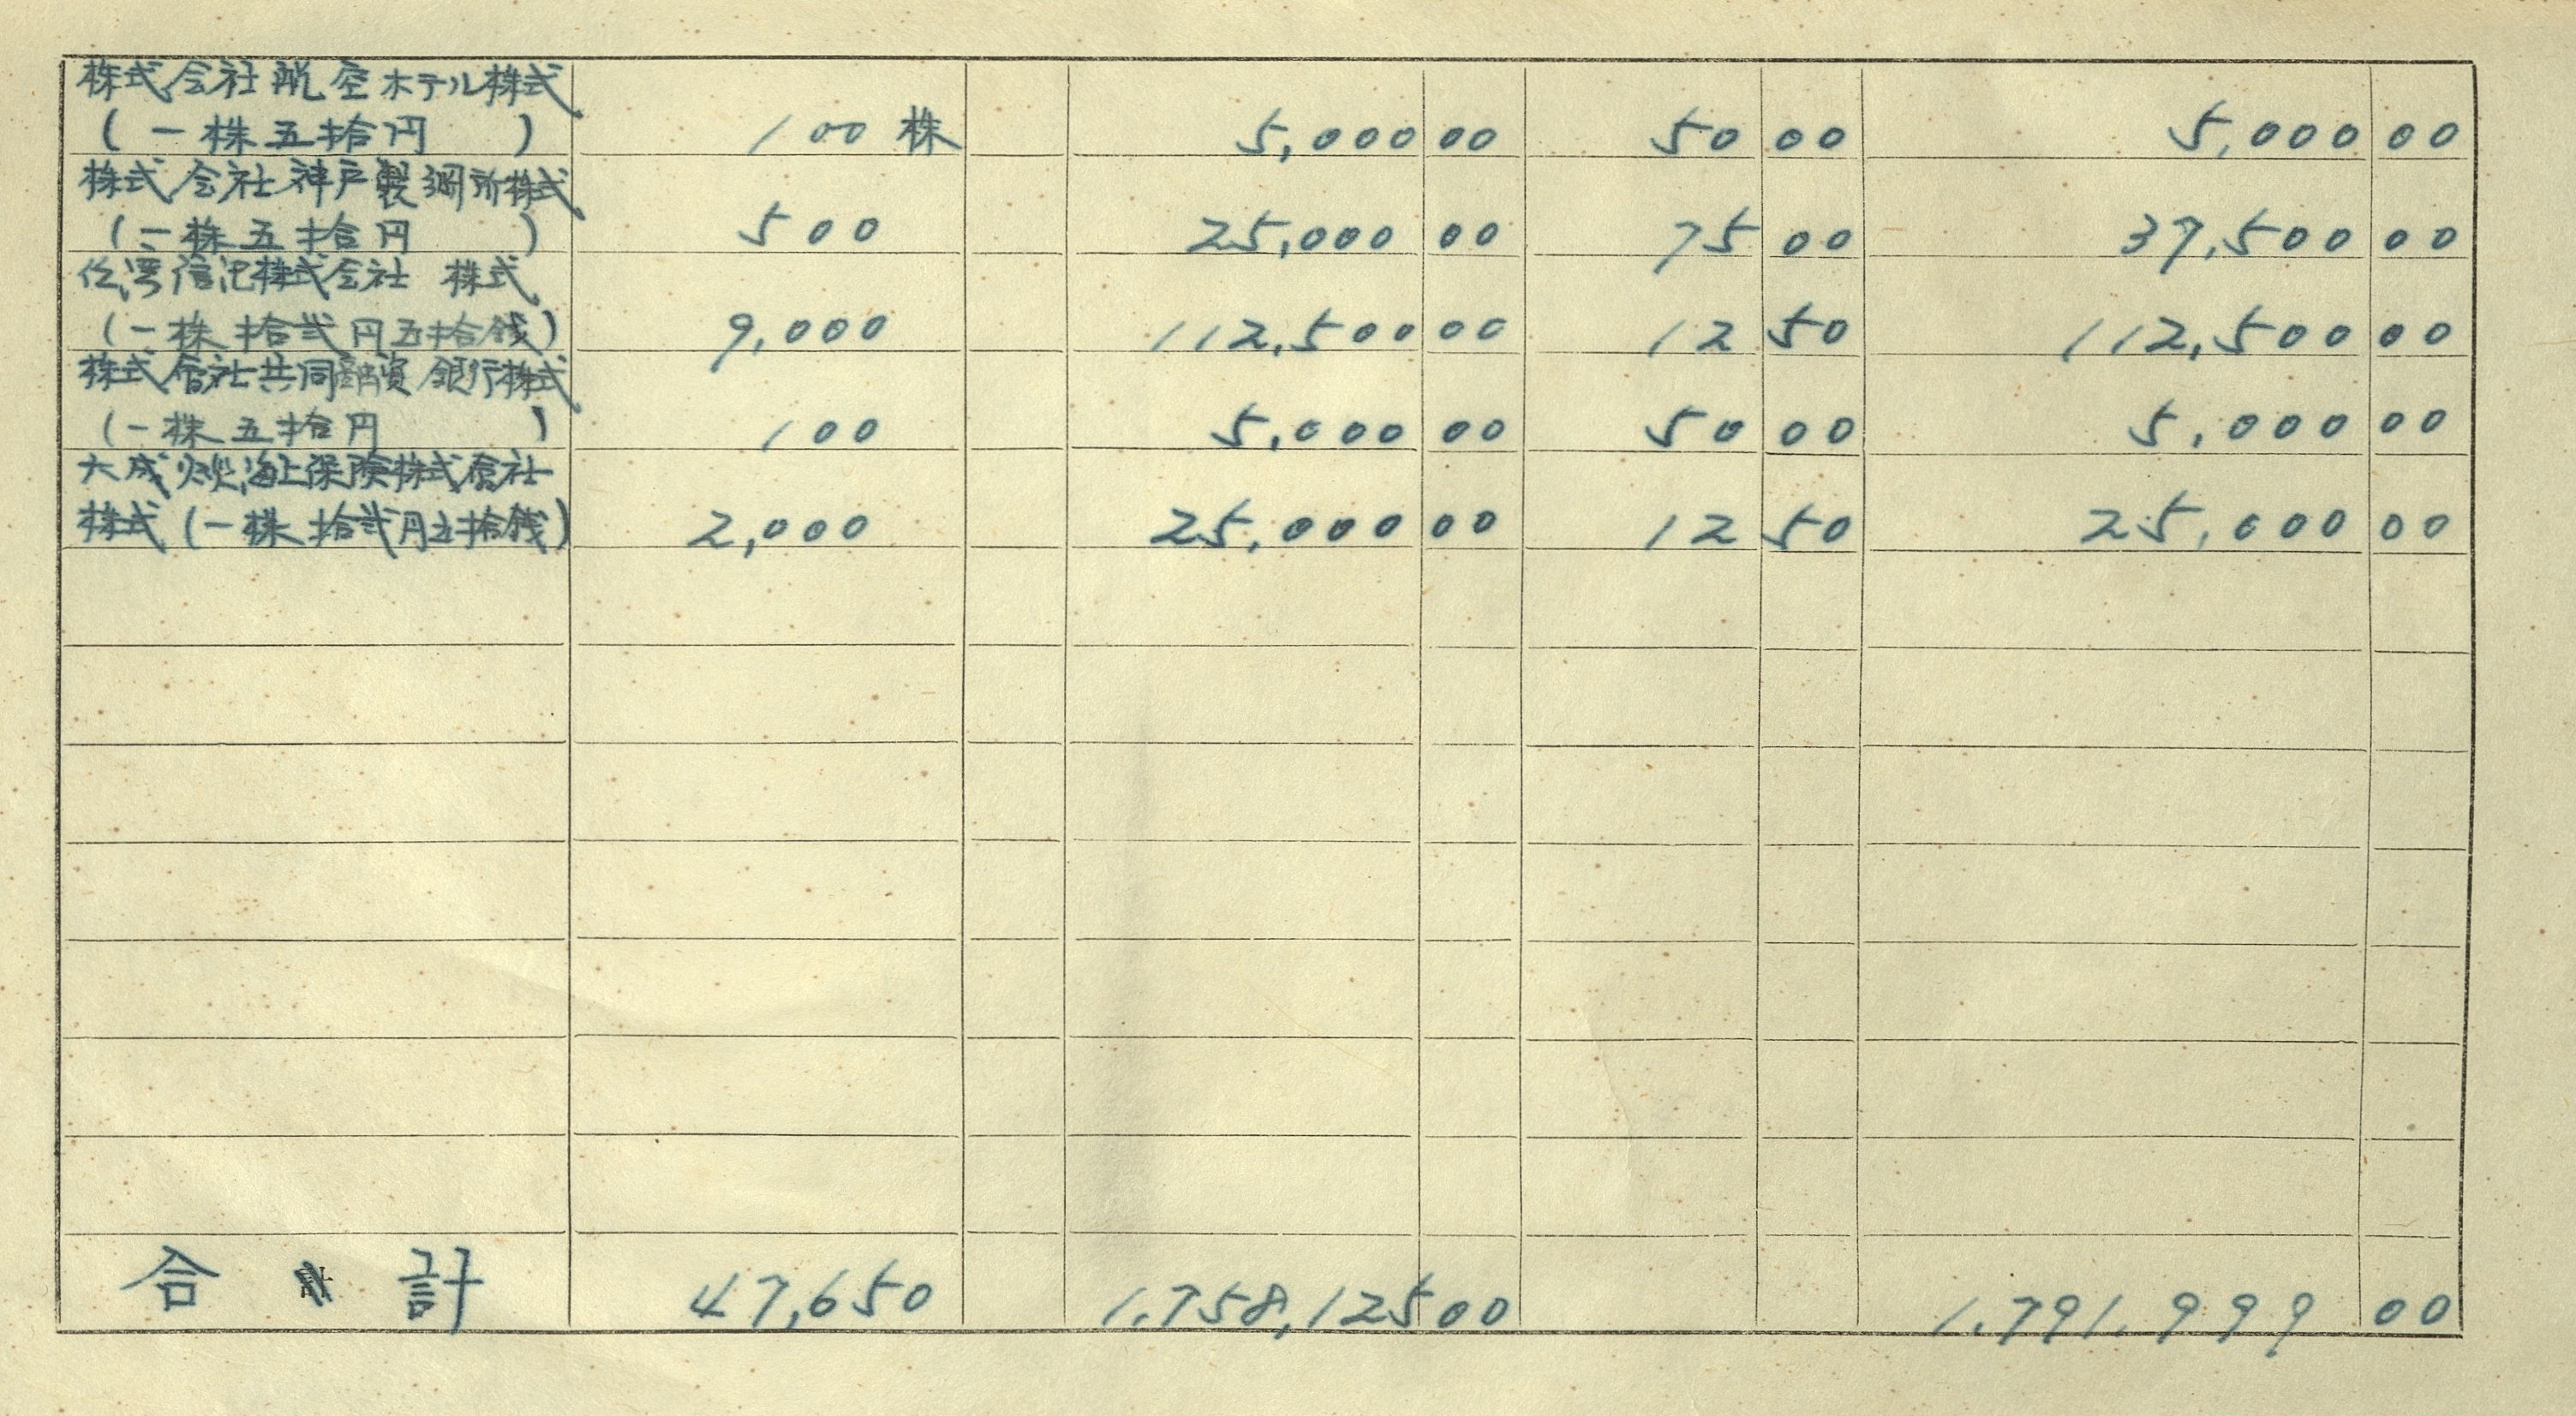 株式会社航空ホテル株式
(一株五拾円) 100株 5,000 00 50 00 5,000 00
株式会社神戸製鋼所株式
(一株五拾円) 500 25,000 00 75 00 37,500 00
台湾信託株式会社 株式
(一株拾弐円五拾銭) 9,000 112,500 00 12 50 112,500 00
株式會社共同融資銀行株式
(一株五拾円) 100 5,000 00 50 00 5,000 00
大成火災海上保険株式會社
株式(一株拾弐円五拾銭) 2,000 25,000 00 12 50 25,000 00
合計 47,650 1,758,125 00 1,791,999 00